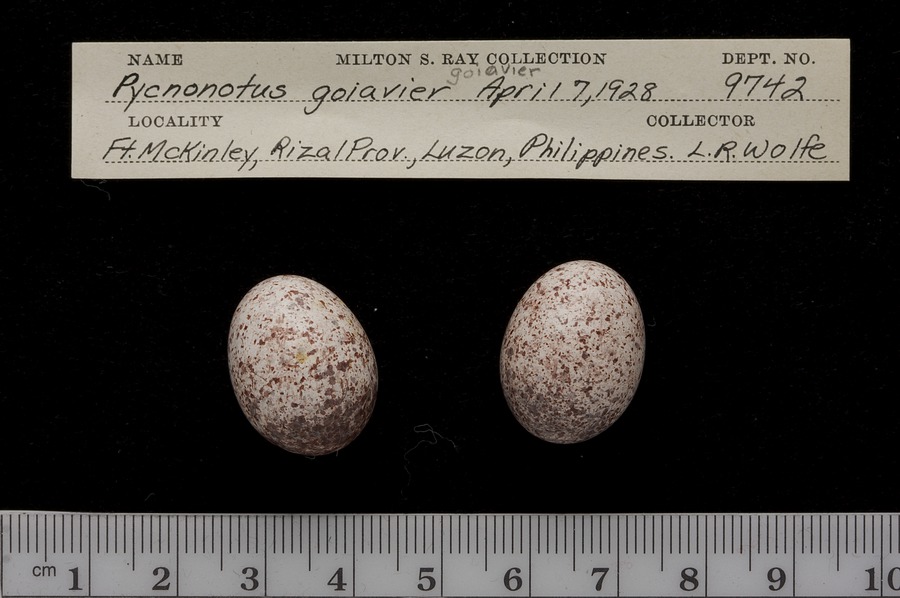 NAME MILTON S. RAY COLLECTION DEPT. NO.
goiavier
Pycnonotus goiavier April 7, 1928 9742
LOCALITY COLLECTOR
Ft. McKinley, Rizal Prov., Luzon, Philippines. L.R. Wolfe
cm 1 2 3 4 5 6 7 8 9 10